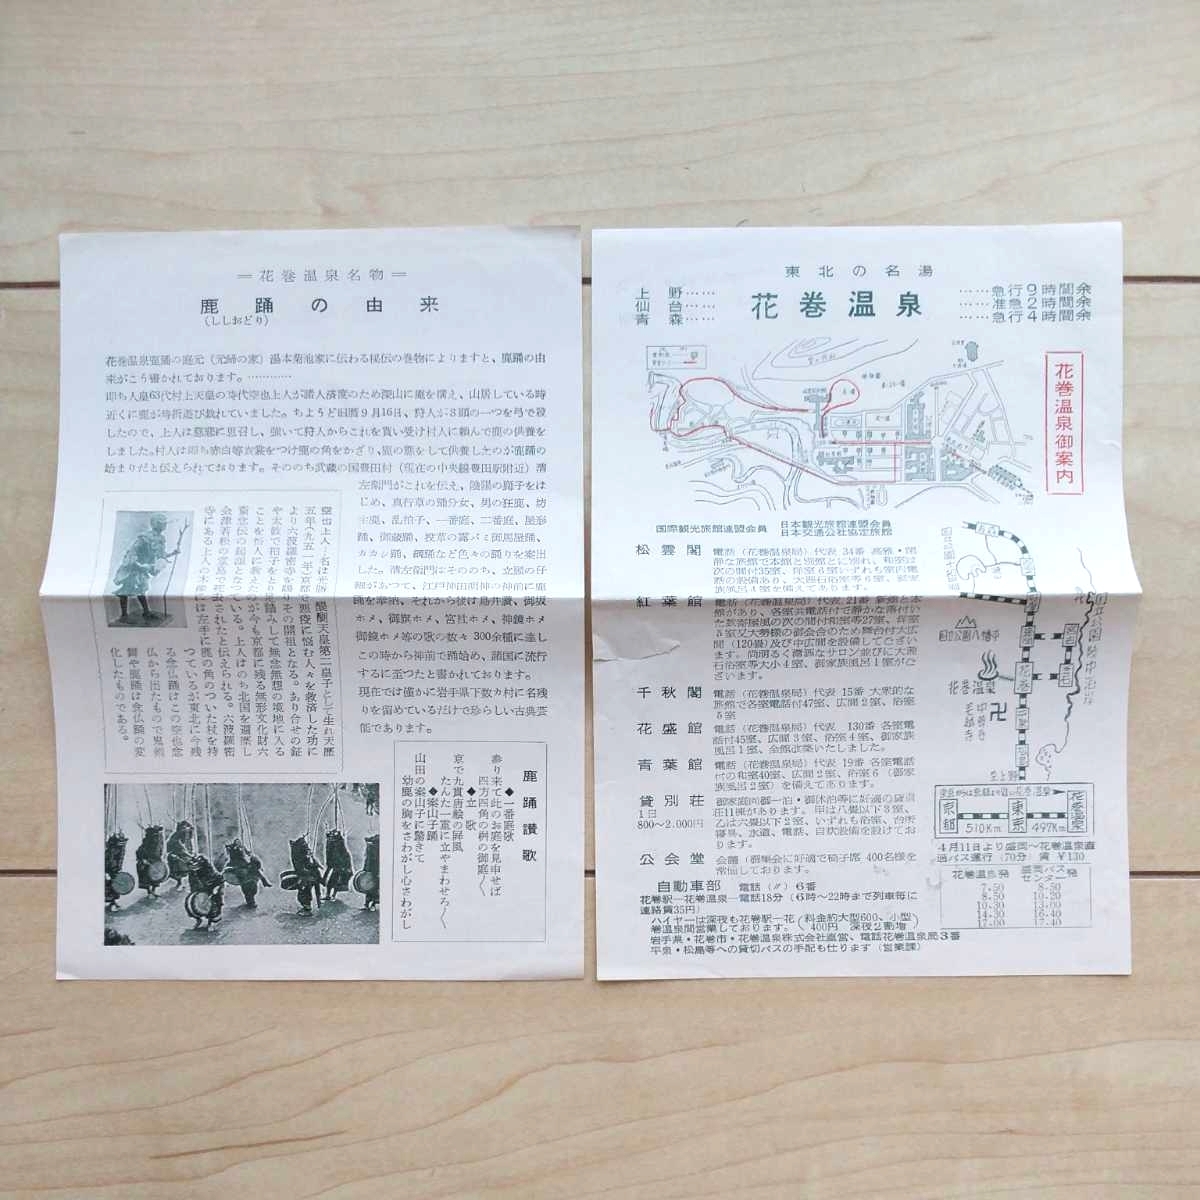 ＝花巻温泉名物＝
鹿踊の由来
(ししおどり)
花巻温泉鹿踊の庭元(元締の家)湯本菊池家に伝わる秘伝の巻物によりますと、鹿踊の由
来がこう書かれております。…………
即ち人皇63代村上天皇の時代空也上人が諸人済度のため深山に庵を構え、山居している時
近くに鹿が時折遊び戯れていました。ちょうど旧暦9月16日、狩人が3頭の一つを弓で殺
したので、上人は悲嘆に思召し、強いて狩人からこれを貰い受け村人に頼んで鹿の供養を
しました。村人は即ち赤白等衣裳をつけ鹿の角をかざり、鹿の態をして供養したのが鹿踊の
始まりだと伝えられております。そののち武蔵の国豊田村(現在の中央線豊田駅附近)清
左衛門がこれを伝え、陰陽の獅子をは
じめ、真行草の踊分女、男の狂鹿、坊
主鹿、乱拍子、一番庭、二番庭、屋形
踊、御蔵踊、投草の露バミ御馬屋踊、
カカシ踊、綱踊など色々の踊りを案出
した。清左衛門はそののち、文圃の仔
細があつて、江戸神田明神の神前に鹿
踊を奉納、それから後は鳥井讃、御坂
ホメ、御旗ホメ、宮社ホメ、神鏡ホメ
御鏡ホメ等の歌の数々300余種に達し
この時から神前で踊始め、諸国に流行
するに至つたと書かれております。
現在では僅かに岩手県下数カ村に名残
りを留めているだけで珍らしい古典芸
能であります。
空也上人…名は光勝、醍醐天皇第二皇子として生れ天歴
五年(九五一年)京都で悪疫に悩む人々を救済した功に
より六波羅密寺を賜りその開祖となる。あり合せの鉦
や太鼓で拍子をとり念仏踊みして無念無想の境地に入る
ことを俗人に教えたのが今も京都に残る無形文化財六
斎念仏の起源となっている。上人はのち北国を遍歴し
会津若松の八葉寺で死去されたと伝えられる。六波羅密
寺にある上人の木像には左手に鹿の角のついた杖を持
つているが東北に今残
る念仏踊はこの空也念
仏から出たもので鬼剣
舞や鹿踊は念仏踊の変
化したものである。
鹿踊讃歌
◆一番庭歌
参り来て此のお庭を見申せば
四方四角の桝の御庭〳〵
◆立歌
京で九貫唐絵の屏風
たんた一重に立やまわせろ〳〵
◆案山子踊
山田の案山子に驚きて
幼鹿の胸をさわがし心さわがし
東北の名湯
花巻温泉
上野……
仙台……
青森……
……急行9時間余
……准急2時間余
……急行4時間余
花巻温泉御案内
国際観光旅館連盟会員
日本観光旅館連盟会員
日本交通公社協定旅館
松雲閣 電話(花巻温泉局)代表34番 高雅・閑
静な旅館で本館と別館とに別れ、和室は
次の間付35室、洋室6室いずれも室内電
話の設備あり、大理石浴室等6室、家家
紅葉館 電話(花巻温泉局)代表21番 新館と本
館があり、各室共電話付で静かな落付い
た数寄屋風の次の間付和室等27室、洋室
5室又大勢様の御会合のため舞台付大広
間(120畳)及び中広間を設備してござい
ます。尚明るく瀟洒なサロン並びに大理
石浴室等大小4室、御家族風呂1室がご
ざいます。
千秋閣 電話(花巻温泉局)代表15番 大衆的な
旅館で各室電話付47室、広間2室、浴室
5室
花盛館 電話(花巻温泉局)代表 130番 各室電
話付45室、広間3室、浴室4室、御家族
風呂1室、全館改築いたしました。
青葉館 電話(花巻温泉局)代表19番 各室電話
付の和室40室、広間2室、浴室6(御家
族風呂2室)を備えてあります。
貸別荘
1日
800〜2.000円
御家庭向御一泊・御休泊等に好適の貸荘
在11棟があります。甲は八畳以下3室、
乙は六畳以下2室、いずれも浴室、台所
寝具、水道、電話、自炊設備を設けてお
ります。
公会堂 会議(御集会に好適で椅子席 400名様を
常備しております。
自動車部 電話(〃)6番
花巻駅―花巻温泉―電話18分(6時〜22時まで列車毎に
連絡賃35円)
ハイヤーは深夜も花巻駅―花
巻温泉間営業しております。
(料金約大型600、小型
400円 深夜2割増)
岩手県・花巻市・花巻温泉株式会社直営、電話花巻温泉局3番
平泉・松島等への貸切バスの手配も仕ります(営業課)
国立公園八幡平
国立公園陸中海岸
盛岡
宮古
花巻
釜石
花巻温泉
中尊寺
毛越寺
至上野
京都
510Km
東京
497Km
花巻温泉
4月11日より盛岡〜花巻温泉直
通バス運行(70分)賃¥130
花巻温泉発
盛岡バスセンター発
7-50 8-50
8-50 10-20
10-30 13-00
14-30 16-40
17-00 17-40